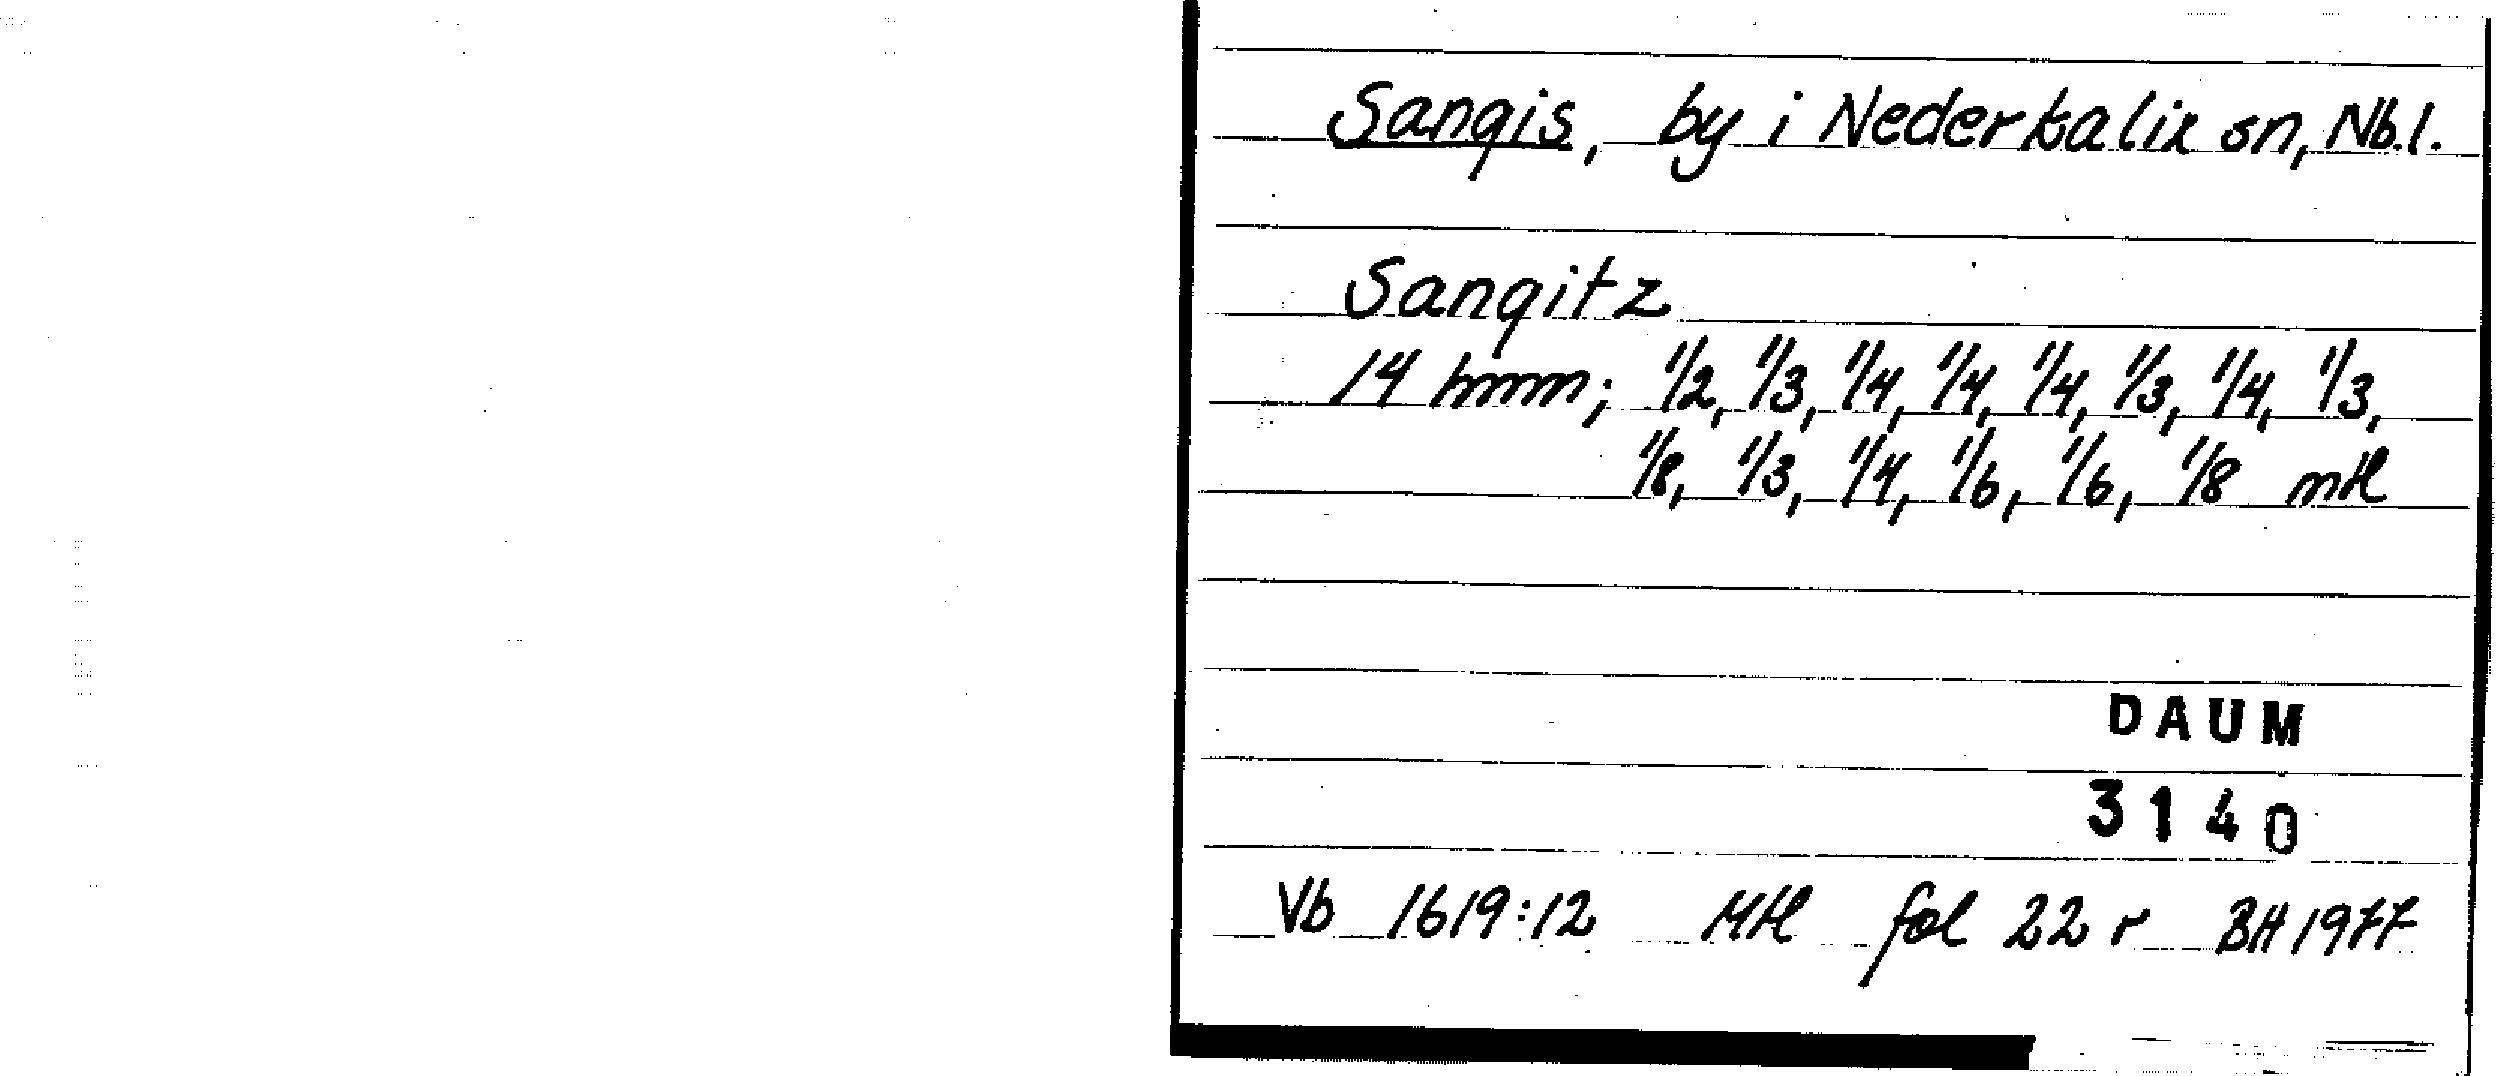 Sangis, by i Nederkalix sn, Nb.l.
Sangitz
14 hmm; 1/2, 1/3, 1/4, 1/4, 1/4, 1/3, 1/4, 1/3,
1/8, 1/3, 1/4, 1/6, 1/6, 1/8 mtl
DAUM
3140
Vb 1619:12 Mtl fol 22 r BH 1977